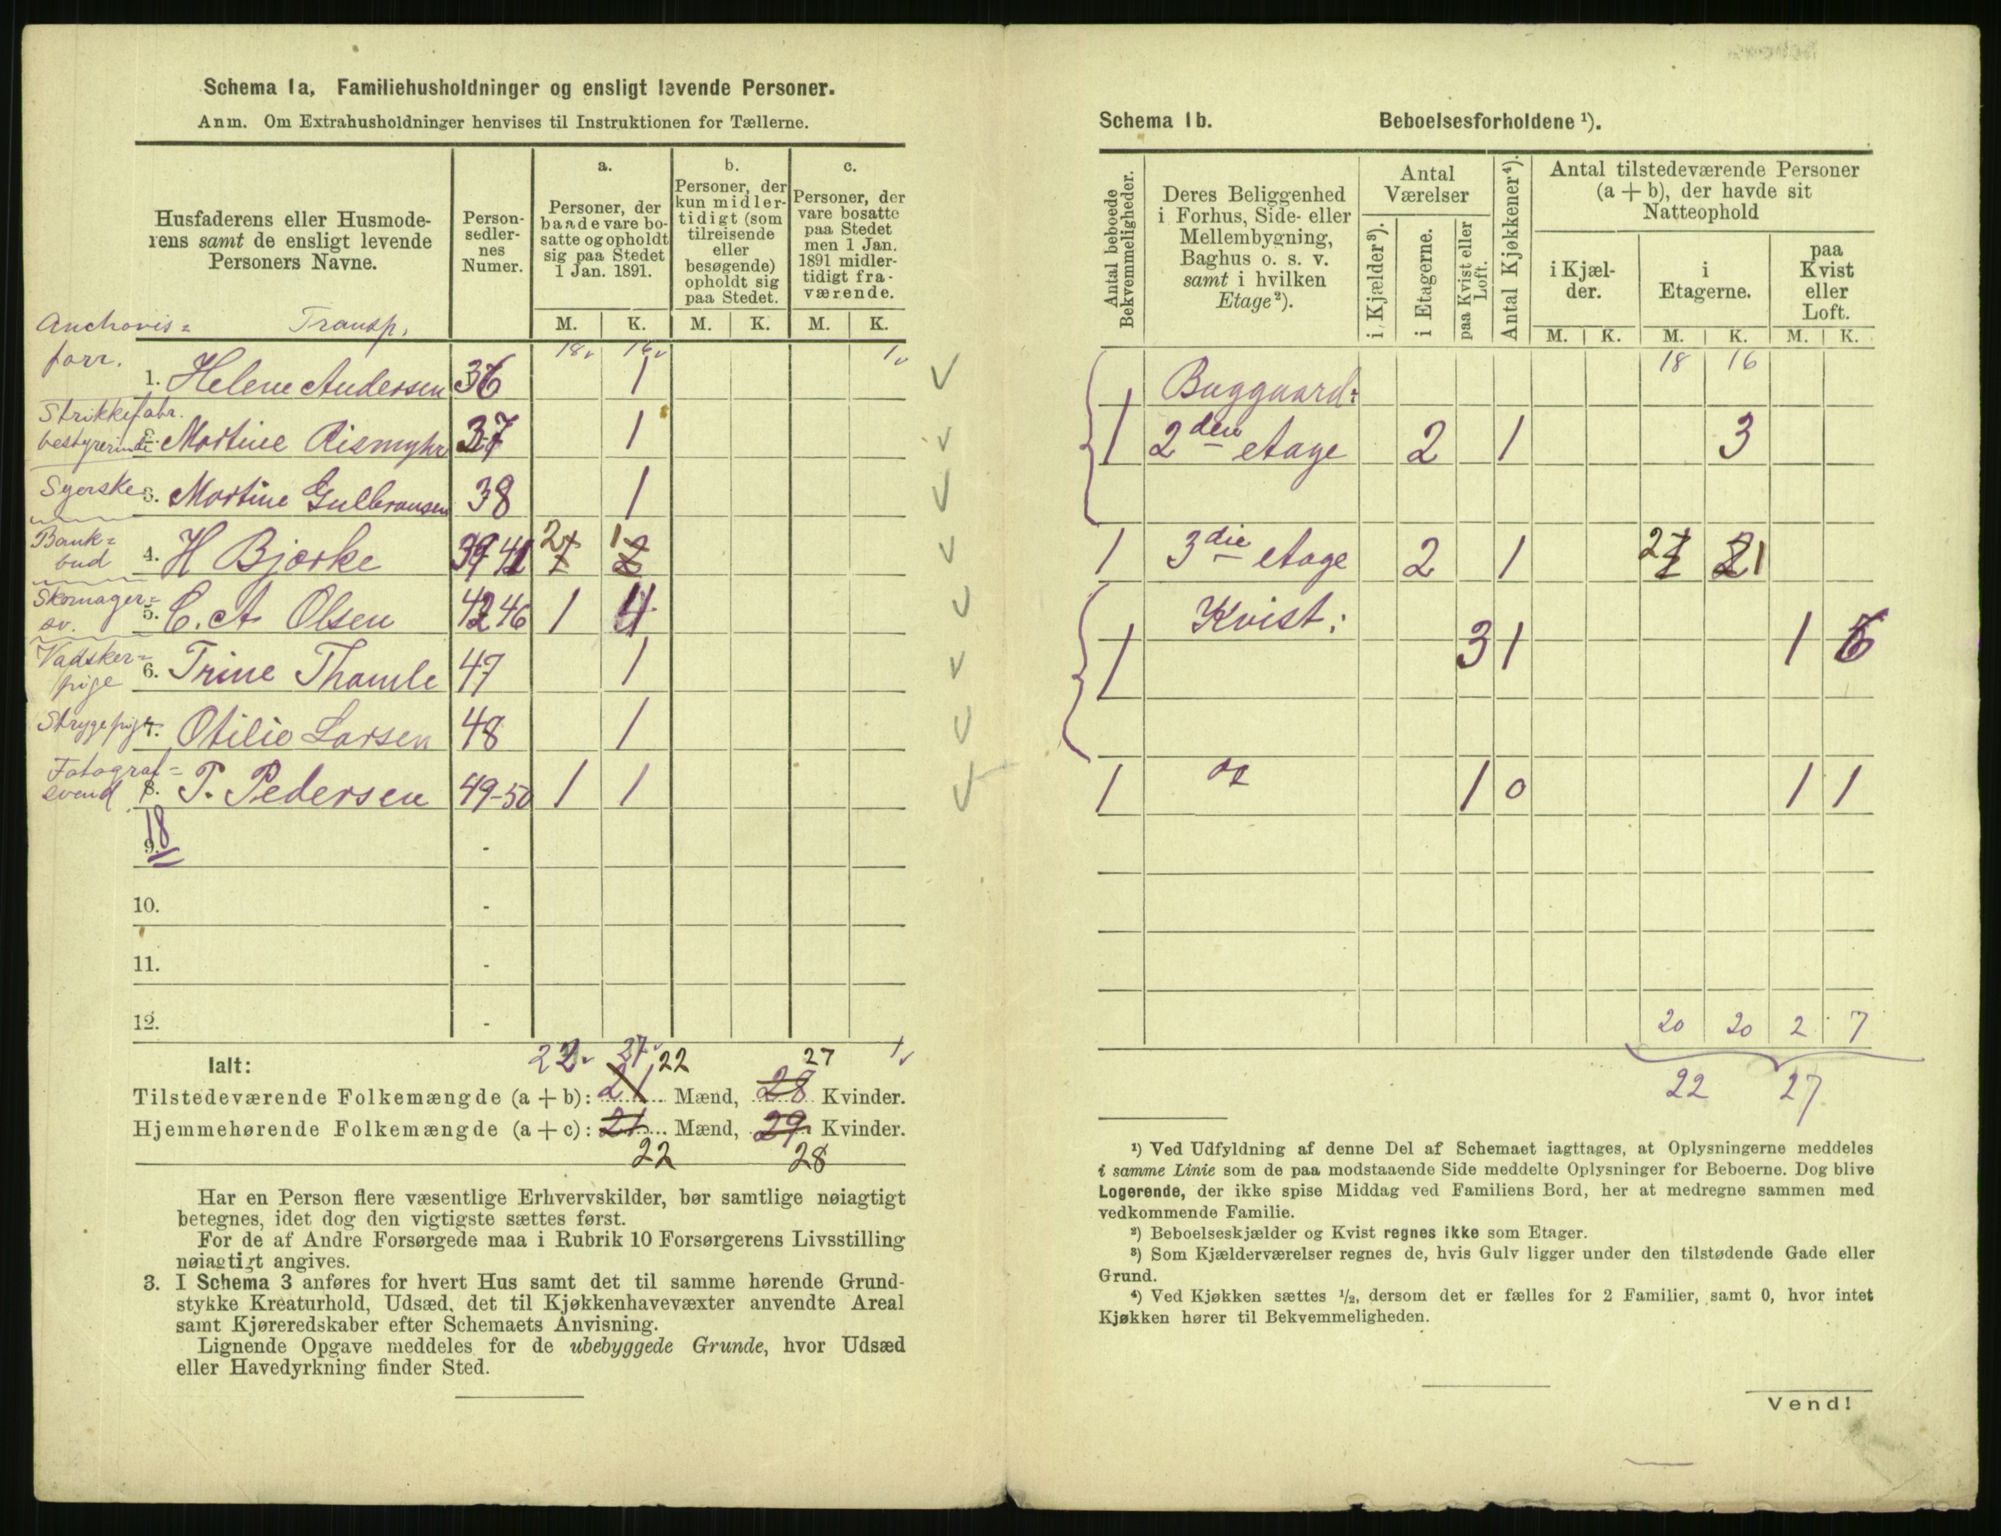 Schema 1a. Familiehusholdninger og ensligt levende Personer.
Anm. Om Extrahusholdninger henvises til Instruktionen for Tællerne.
Husfaderens eller Husmoderens samt de ensligt levende Personers Navne.
Personsedlernes Numer.
a.
Personer, der baade vare bosatte og opholdt sig paa Stedet 1 Jan. 1891.
b.
Personer, der kun midlertidigt (som tilreisende eller besøgende) opholdt sig paa Stedet.
c.
Personer, der vare bosatte paa Stedet men 1 Jan. 1891 midlertidigt fraværende.
M. K. M. K. M. K.
Anchovis= Transp. 18 16 1
forr.
1. Helene Andersen 36 1
Strikkefabr.
bestyrerinde 2. Martine Rismyhr 37 1
Syerske 3. Martine Gulbransen 38 1
Bank=
bud 4. H Bjerke 39 41 2 1
Skomager=
sv. 5. C. A Olsen 42 46 1 4
Vadsker=
pige 6. Trine Thamle 47 1
Strygepige 7. Otilie Larsen 48 1
Fotograf=
svend 8. P. Pedersen 49-50 1 1
18
9. -
10. -
11. -
12. -
Ialt: 22 27 1
22 27
Tilstedeværende Folkemængde (a + b): 21 Mænd, 28 Kvinder.
Hjemmehørende Folkemængde (a + c): 21 Mænd, 29 Kvinder.
22 28
Har en Person flere væsentlige Erhvervskilder, bør samtlige nøiagtigt
betegnes, idet dog den vigtigste sættes først.
For de af Andre Forsørgede maa i Rubrik 10 Forsørgerens Livsstilling
nøiagtigt angives.
3. I Schema 3 anføres for hvert Hus samt det til samme hørende Grund-
stykke Kreaturhold, Udsæd, det til Kjøkkenhavevæxter anvendte Areal
samt Kjøreredskaber efter Schemaets Anvisning.
Lignende Opgave meddeles for de ubebyggede Grunde, hvor Udsæd
eller Havedyrkning finder Sted.
Schema 1b. Beboelsesforholdene ¹).
Antal beboede Bekvemmeligheder.
Deres Beliggenhed i Forhus, Side- eller Mellembygning, Baghus o. s. v. samt i hvilken Etage ²).
Antal Værelser
i Kjælder ³).
i Etagerne.
paa Kvist eller Loft.
Antal Kjøkkener ⁴).
Antal tilstedeværende Personer (a + b), der havde sit Natteophold
i Kjælder.
i Etagerne.
paa Kvist eller Loft.
M. K. M. K. M. K.
18 16
Baggaard:
1 2den etage 2 1 3
1 3die etage 2 1 2 1
Kvist:
1 3 1 1 6
1 1 0 1 1
20 20 2 7
22 27
¹) Ved Udfyldning af denne Del af Schemaet iagttages, at Oplysningerne meddeles
i samme Linie som de paa modstaaende Side meddelte Oplysninger for Beboerne. Dog blive
Logerende, der ikke spise Middag ved Familiens Bord, her at medregne sammen med
vedkommende Familie.
²) Beboelseskjælder og Kvist regnes ikke som Etager.
³) Som Kjælderværelser regnes de, hvis Gulv ligger under den tilstødende Gade eller
Grund.
⁴) Ved Kjøkken sættes ½, dersom det er fælles for 2 Familier, samt 0, hvor intet
Kjøkken hører til Bekvemmeligheden.
Vend!